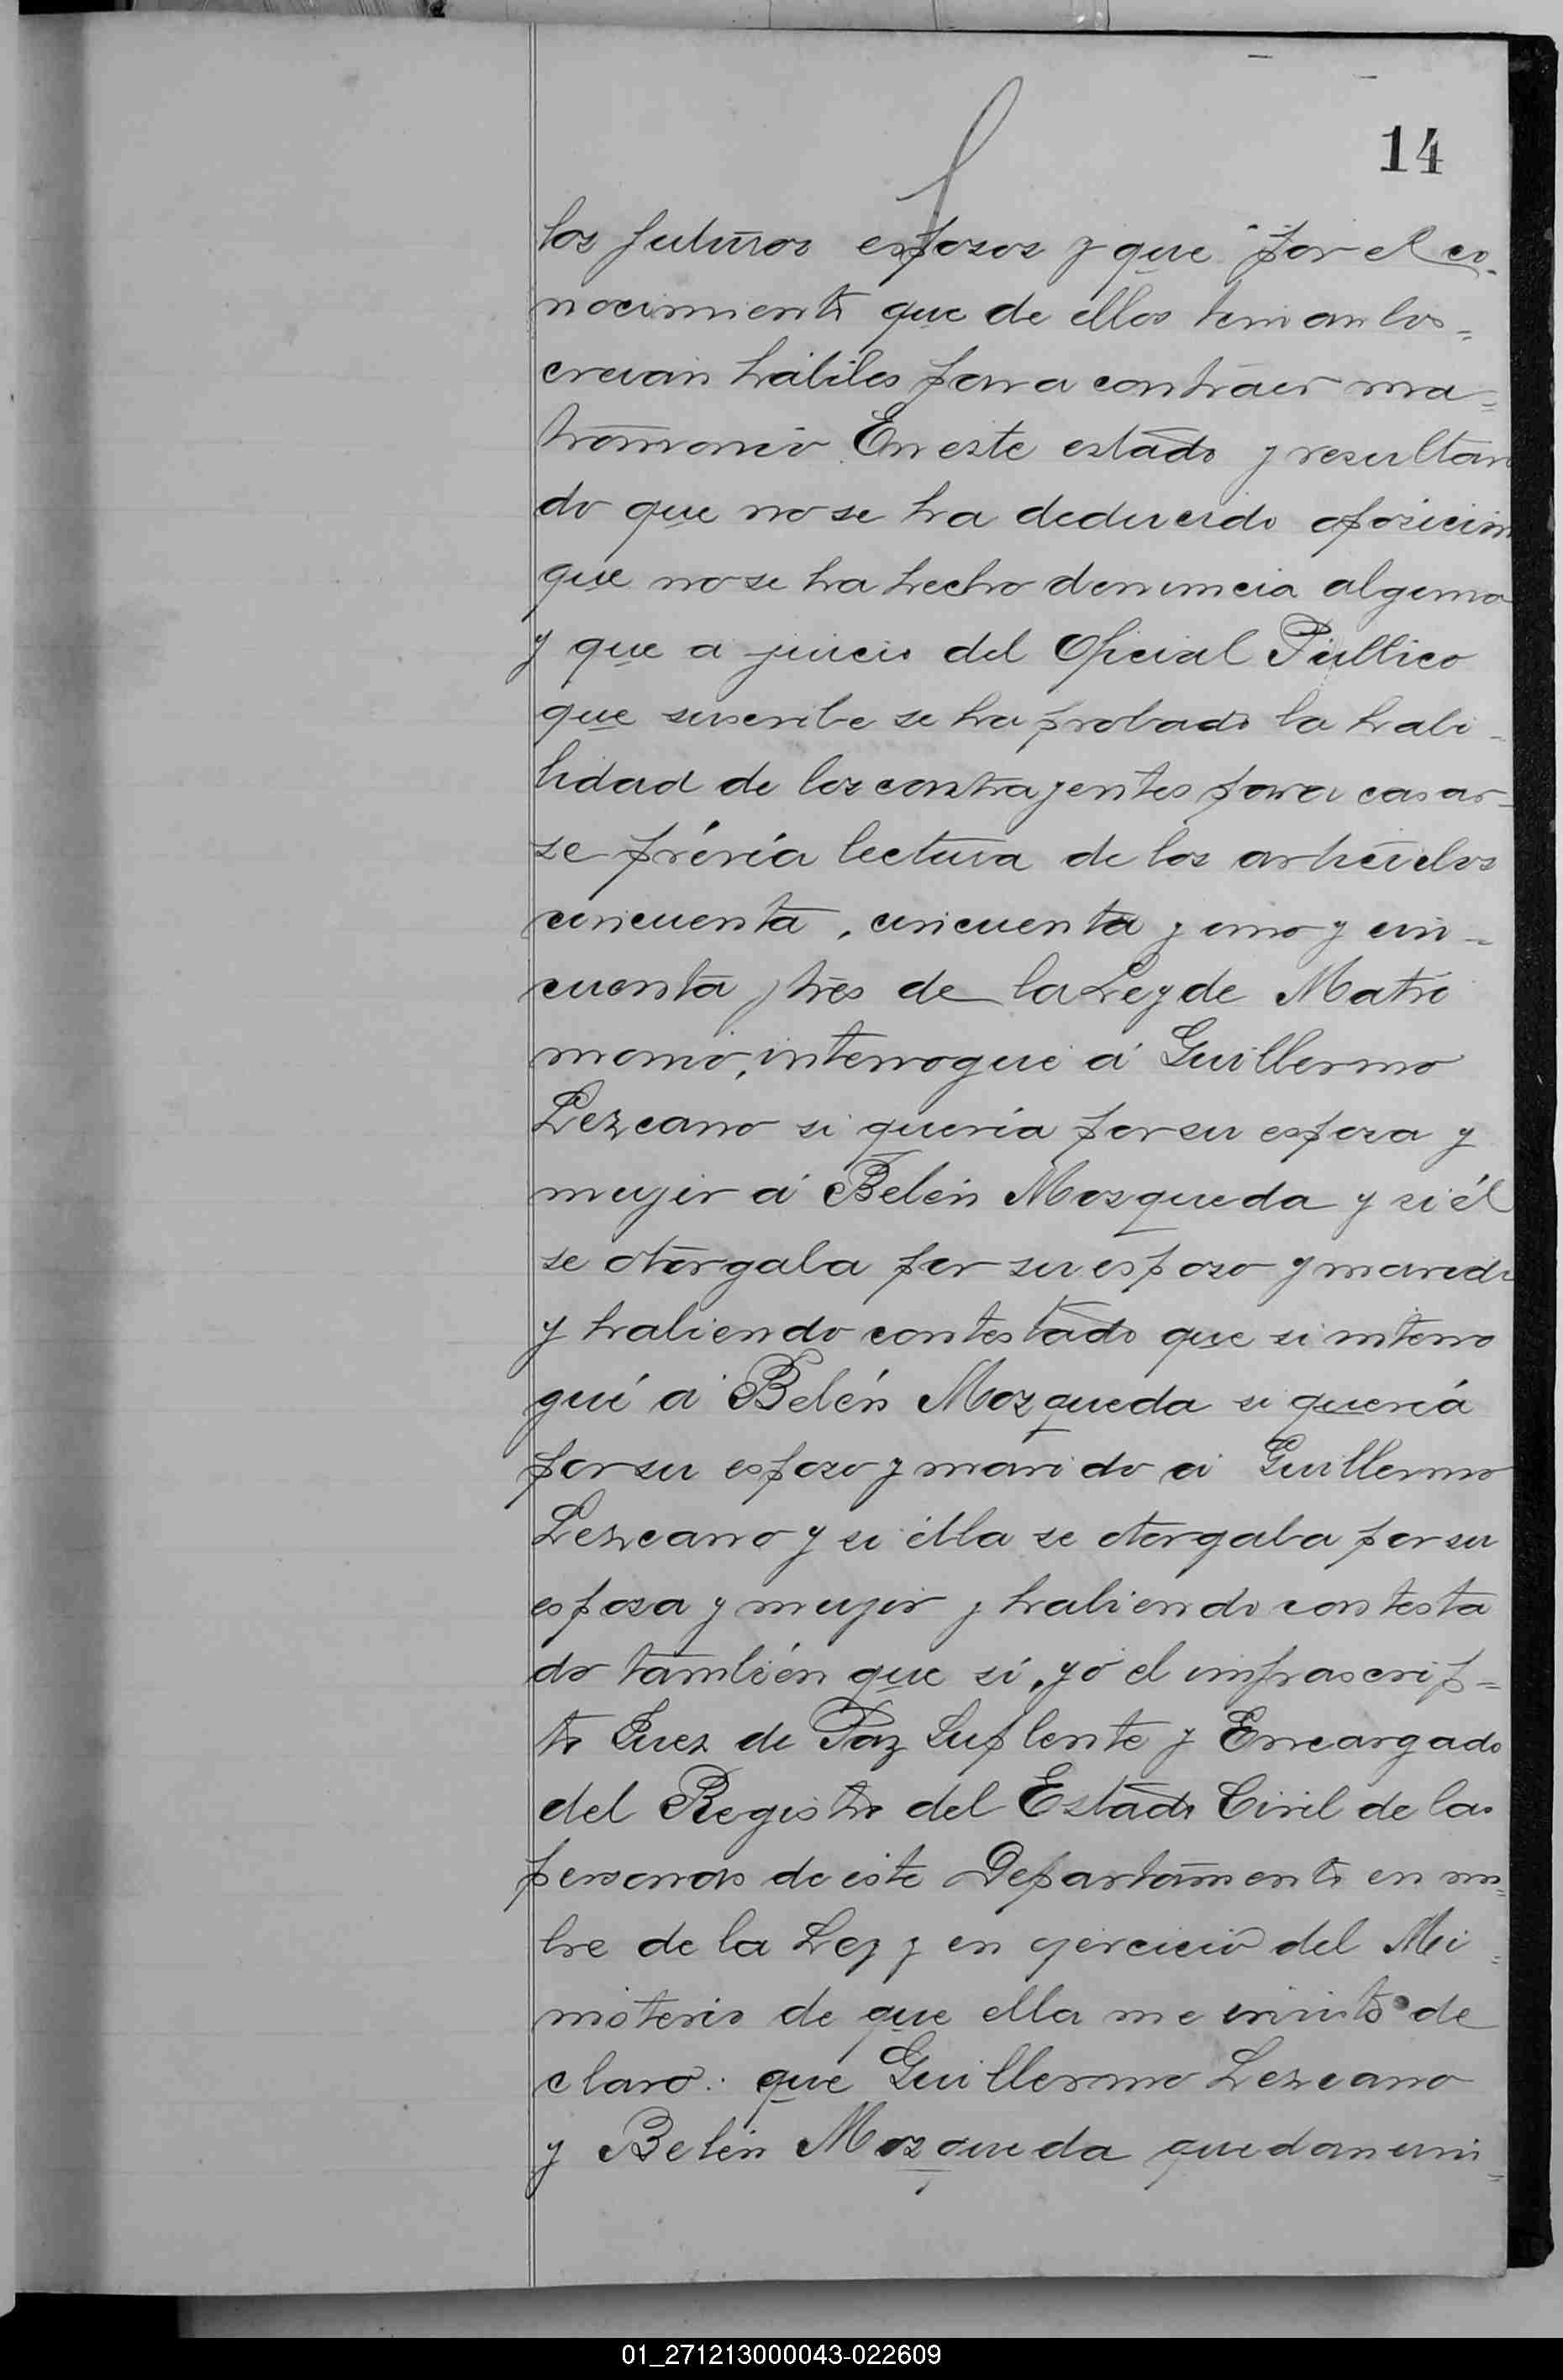 14
los futuros esposos y que por el co-
nocimiento que de ellos tenian los=
creian hábiles para contraer ma=
trimonio En este estado y resultan
do que no se ha deducido oposicion
que no se ha hecho denuncia alguna
y que a juicio del Oficial Público
que suscribe se ha probado la habi-
lidad de los contrayentes para casar-
se prévia lectura de los artículos
cincuenta, cincuenta y uno y cin=
cuenta y tres de la Ley de Matri
monio, interrogué á Guillermo
Lezcano si quería por su esposa y
mujer á Belén Mosqueda y si él
se otorgaba por su esposo y marido
y habiendo contestado que si interro
gué á Belén Mozqueda si quería
por su esposo y marido á Guillermo
Lezcano y si élla se otorgaba por su
esposa y mujer y habiendo contesta
do también que sí, yó el infrascrip=
to Juez de Paz Suplente y Encargado
del Registro del Estado Civil de las
personas de este Departamento en nom=
bre de la Ley y en ejercicio del Mi=
nisterio de que ella me invistó de
claro: que Guillermo Lezcano
y Belén Mozqueda quedan uni=
01_271213000043-022609